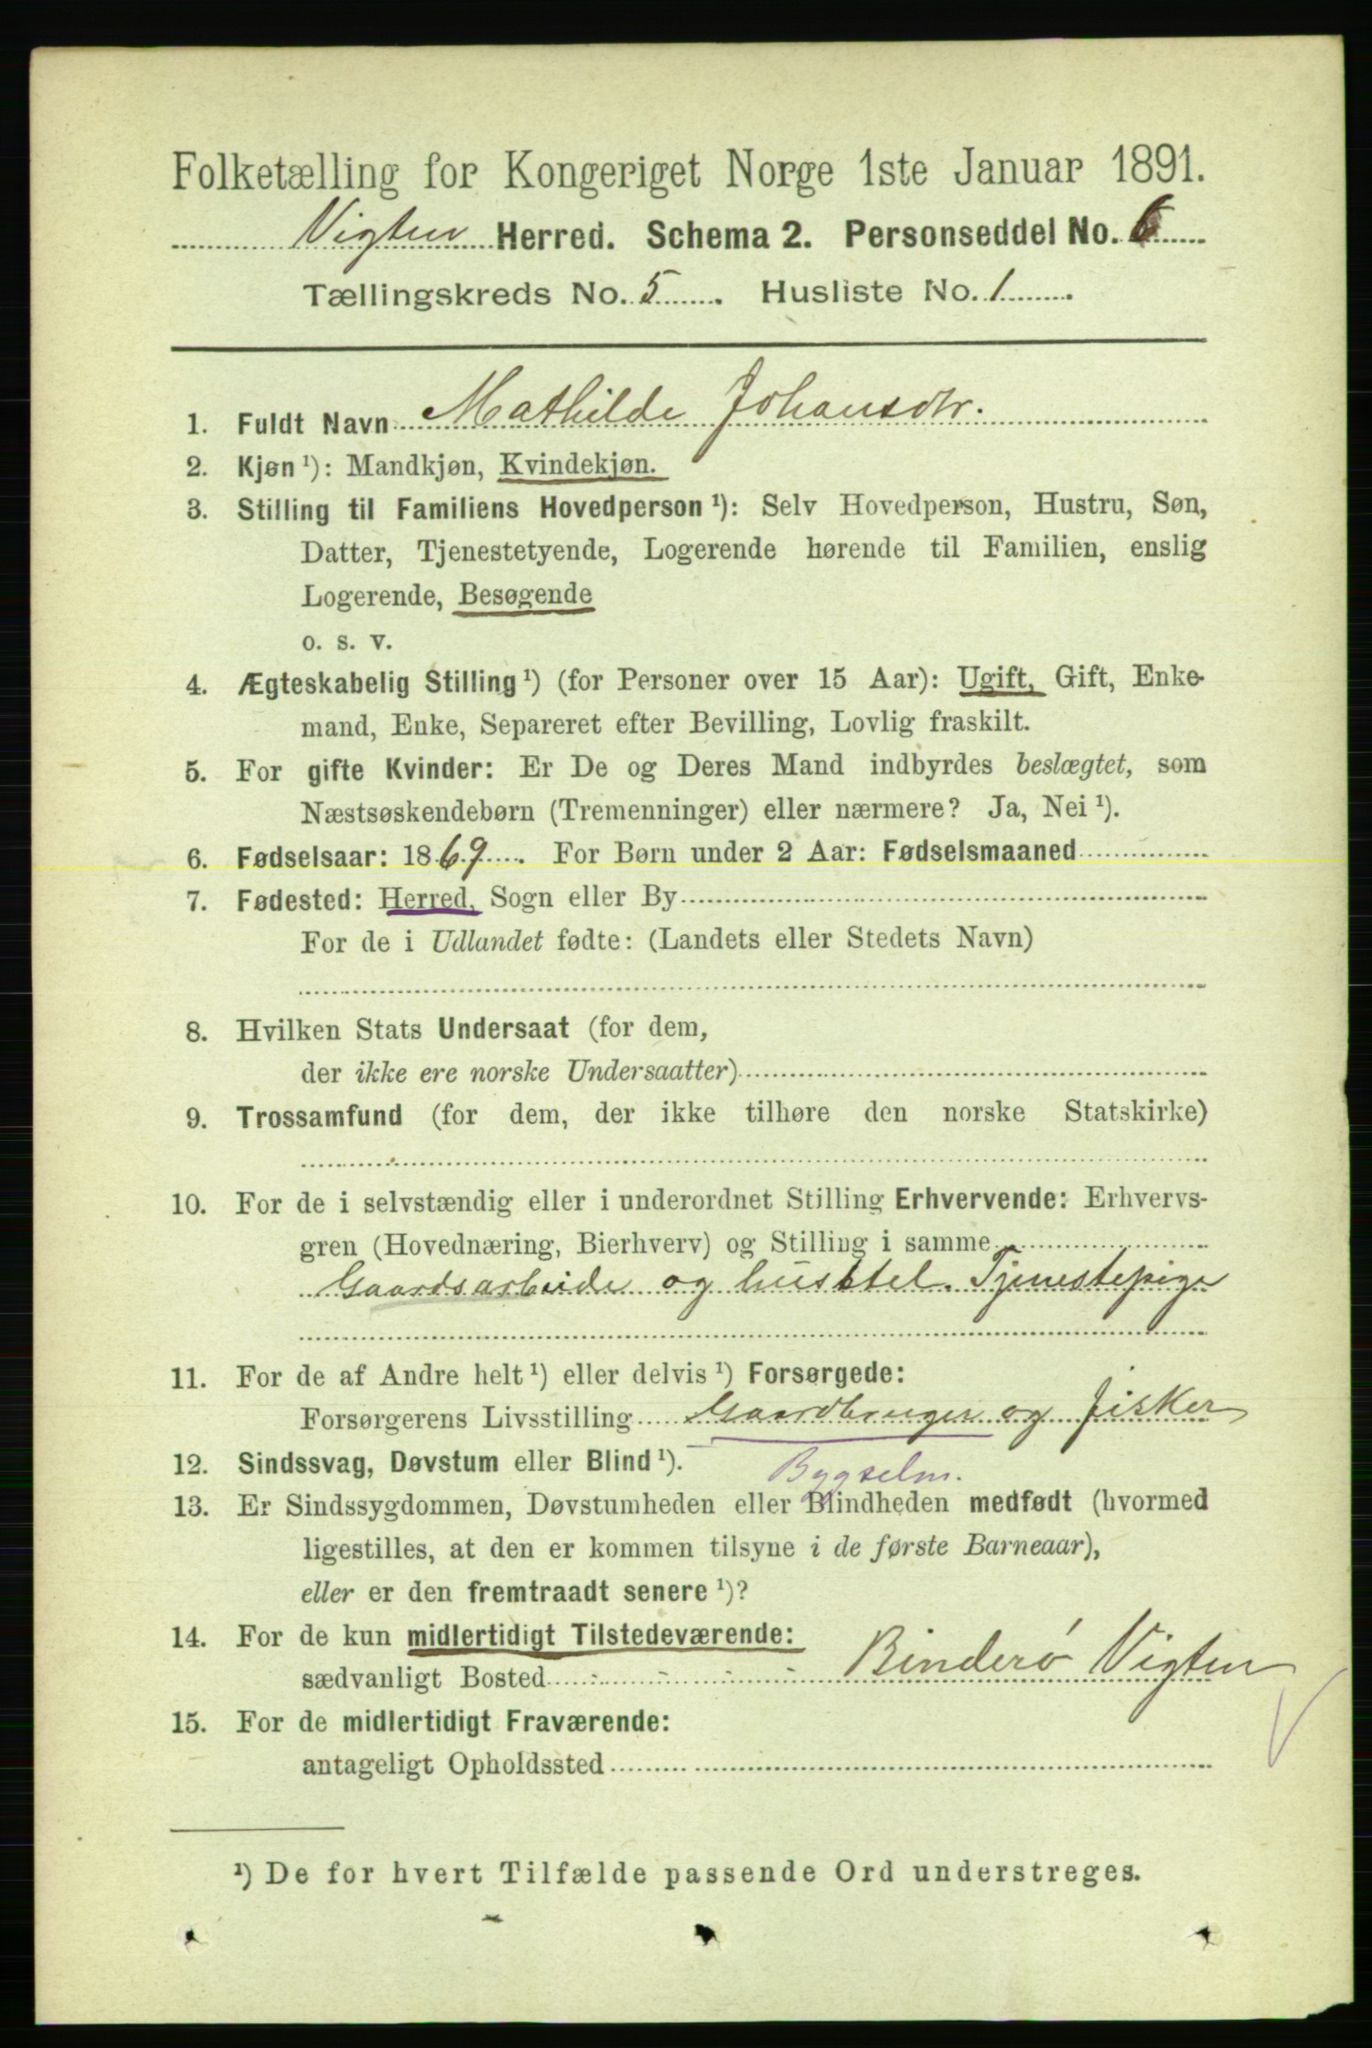 Folketælling for Kongeriget Norge 1ste Januar 1891.
Vigten Herred. Schema 2. Personseddel No. 6
Tællingskreds No. 5. Husliste No. 1.
1. Fuldt Navn Mathilde Johansdtr.
2. Kjøn ¹): Mandkjøn, Kvindekjøn.
3. Stilling til Familiens Hovedperson ¹): Selv Hovedperson, Hustru, Søn,
Datter, Tjenestetyende, Logerende hørende til Familien, enslig
Logerende, Besøgende
o. s. v.
4. Ægteskabelig Stilling ¹) (for Personer over 15 Aar): Ugift, Gift, Enke-
mand, Enke, Separeret efter Bevilling, Lovlig fraskilt.
5. For gifte Kvinder: Er De og Deres Mand indbyrdes beslægtet, som
Næstsøskendebørn (Tremenninger) eller nærmere? Ja, Nei ¹).
6. Fødselsaar: 1869. For Børn under 2 Aar: Fødselsmaaned
7. Fødested: Herred, Sogn eller By
For de i Udlandet fødte: (Landets eller Stedets Navn)
8. Hvilken Stats Undersaat (for dem,
der ikke ere norske Undersaatter)
9. Trossamfund (for dem, der ikke tilhøre den norske Statskirke)
10. For de i selvstændig eller i underordnet Stilling Erhvervende: Erhvervs-
gren (Hovednæring, Bierhverv) og Stilling i samme
Gaardsarbeide og husstel. Tjenestepige
11. For de af Andre helt ¹) eller delvis ¹) Forsørgede:
Forsørgerens Livsstilling Gaardbruger og fisker
12. Sindssvag, Døvstum eller Blind ¹). Bygselm.
13. Er Sindssygdommen, Døvstumheden eller Blindheden medfødt (hvormed
ligestilles, at den er kommen tilsyne i de første Barneaar),
eller er den fremtraadt senere ¹)?
14. For de kun midlertidigt Tilstedeværende:
sædvanligt Bosted Binderø Vigten
15. For de midlertidigt Fraværende:
antageligt Opholdssted
¹) De for hvert Tilfælde passende Ord understreges.